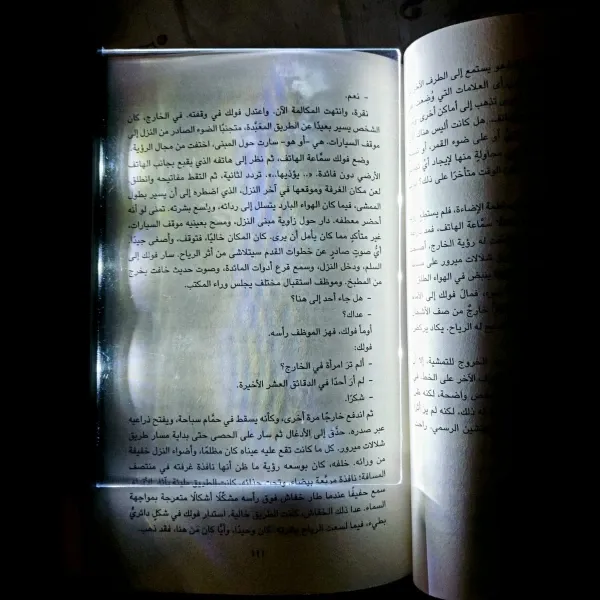 - نعم.
نقرة، وانتهت المكالمة الآن. واعتدل فولك في وقفته. في الخارج، كان
الشخص يسير بعيدًا عن الطريق المعبّدة، متجنبًا الضوء الصادر من النزل إلى
موقف السيارات. هي -أو هو- سارت حول المبنى، اختفت من مجال الرؤية.
وضع فولك سمَّاعة الهاتف، ثم نظر إلى هاتفه الذي يقبع بجانب الهاتف
الأرضي دون فائدة. «.. يؤذيها..». تردد لثانية، ثم التقط مفاتيحه وانطلق.
لعن مكان الغرفة وموقعها في آخر النزل، الذي اضطره إلى أن يسير بطول
الممشى، فيما كان الهواء البارد يتسلل إلى ردائه، ويلسع بشرته. تمنى لو أنه
أحضر معطفه. دار حول زاوية مبنى النزل، ومسح بعينيه موقف السيارات،
غير متأكد مما كان يأمل أن يرى. كان المكان خاليًا، فتوقف، وأصغى جيدًا.
أيُّ صوتٍ صادرٍ عن خطوات القدم سيتلاشى من أثر الرياح. سار فولك إلى
السلم، ودخل النزل، وسمع قرع أدوات المائدة، وصوت حديث خافت يخرج
من المطبخ. وموظف استقبال مختلف يجلس وراء المكتب.
- هل جاء أحد إلى هنا؟
- عداك؟
أومأ فولك، فهز الموظف رأسه.
فولك:
- ألم ترَ امرأة في الخارج؟
- لم أرَ أحدًا في الدقائق العشر الأخيرة.
- شكرًا.
ثم اندفع خارجًا مرة أخرى، وكأنه يسقط في حمَّام سباحة، ويفتح ذراعيه
عبر صدره. حدَّق إلى الأدغال ثم سار على الحصى حتى بداية مسار طريق
شلالات ميرور. كل ما كانت تقع عليه عيناه كان مظلمًا، وأضواء النزل خفيفة
من ورائه. خلفه، كان بوسعه رؤية ما ظن أنها نافذة غرفته في منتصف
المسافة؛ نافذة مربعة بيضاء. وتحت حذائه، كانت الطريق مليئة بآثار الأقدام.
سمع حفيفًا عندما طار خفاش فوق رأسه مشكلًا أشكالًا متعرجة بمواجهة
السماء. عدا ذلك الخفاش، كانت الطريق خالية. استدار فولك في شكل دائريٍّ
بطيء، فيما لسعت الرياح ياقته. كان وحيدًا، وأيًّا كان مَن هنا، فقد ذهب.
هو يستمع إلى الطرف
العلامات التي
تذهب إلى أماكن أخرى
هل كانت أليس
أو على ضوء القمر، أو
محاولةٍ منها لإيجاد أيِّ
الوقت متأخرًا على ذلك
الإضاءة، فلم يستطع
سمَّاعة الهاتف،
له رؤية الخارج،
شلالات ميرور على
ينبض في الهواء
فمال فولك إلى
خارجٌ من صف
له الرياح. يكاد
الخروج للتمشية. إلا
الآخر على الخط
واضحة، لكنه
له ذلك، لكنه لم يرَ
الرسمي.